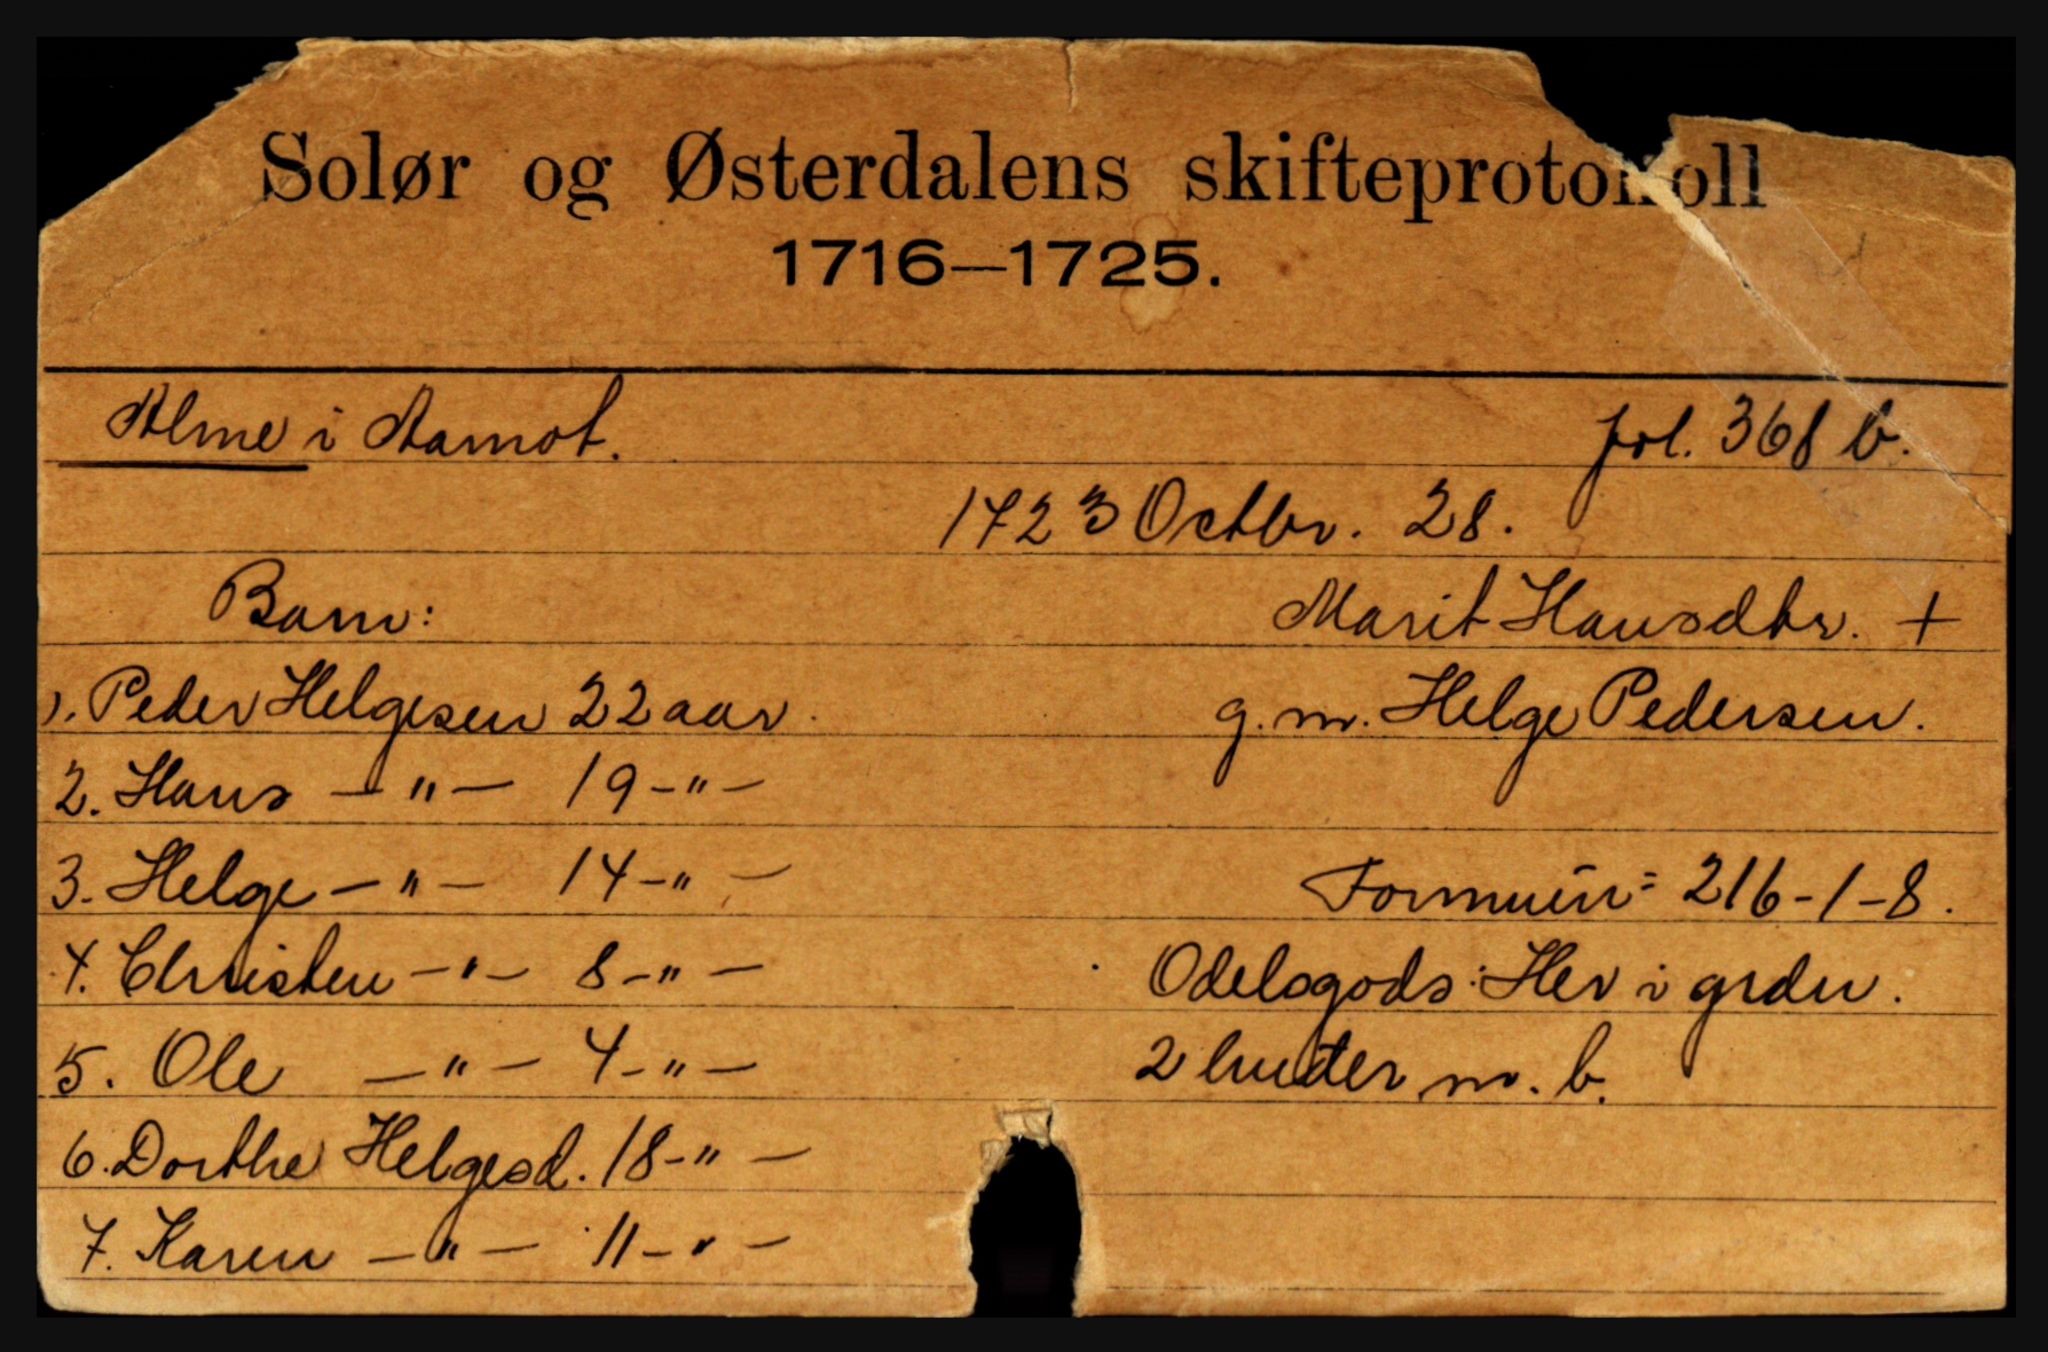 Solør og Østerdalens skifteprotokoll
1716—1725.
Alme i Aamot.
fol. 368 b.
1723 Octbr. 28.
Barn:
1. Peder Helgesen 22 aar.
2. Hans — " — 19 — " —
3. Helge — " — 14 — " —
4. Christen — " — 8 — " —
5. Ole — " — 4 — " —
6. Dorthe Helgesd. 18 — " —
7. Karen — " — 11 — " —
Marit Hansdtr. +
g. m. Helge Pedersen.
Formuen = 216-1-8.
Odelsgods: Her i grden.
2 huder m. b.